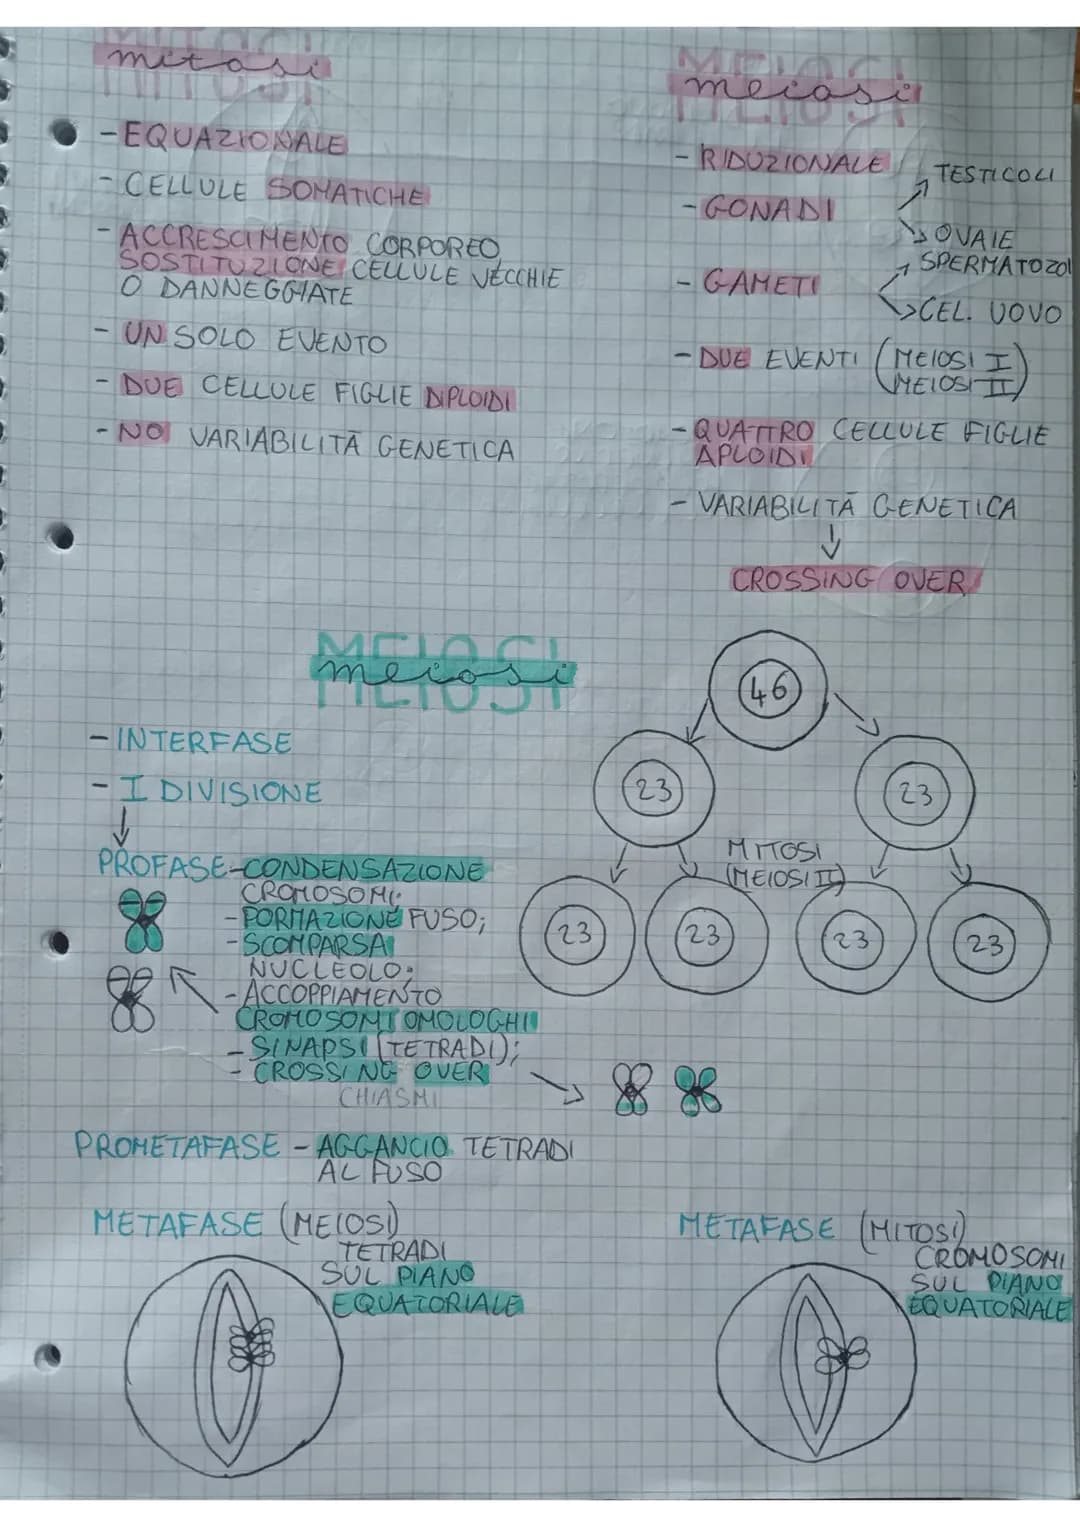 MITOSI
mitosi
- EQUAZIONALE
- CELLULE SOMATICHE
- ACCRESCIMENTO CORPOREO
SOSTITUZIONE CELLULE VECCHIE
O DANNEGGIATE
- UN SOLO EVENTO
- DUE CELLULE FIGLIE DIPLOIDI
- NO VARIABILITÀ GENETICA
MEIOSI
meiosi
- RIDUZIONALE
- GONADI
TESTICOLI
OVAIE
- GAMETI
SPERMATOZOI
CEL. UOVO
- DUE EVENTI (MEIOSI I
MEIOSI II)
- QUATTRO CELLULE FIGLIE
APLOIDI
- VARIABILITÀ GENETICA
CROSSING OVER
MEIOSI
meiosi
- INTERFASE
- I DIVISIONE
PROFASE - CONDENSAZIONE
CROMOSOMI;
- FORMAZIONE FUSO;
- SCOMPARSA
NUCLEOLO;
- ACCOPPIAMENTO
CROMOSOMI OMOLOGHI
- SINAPSI (TETRADI);
- CROSSING OVER
CHIASMI
46
23
23
MITOSI
(MEIOSI II)
23
23
23
23
PROMETAFASE - AGGANCIO TETRADI
AL FUSO
METAFASE (MEIOSI)
TETRADI
SUL PIANO
EQUATORIALE
METAFASE (MITOSI)
CROMOSOMI
SUL PIANO
EQUATORIALE